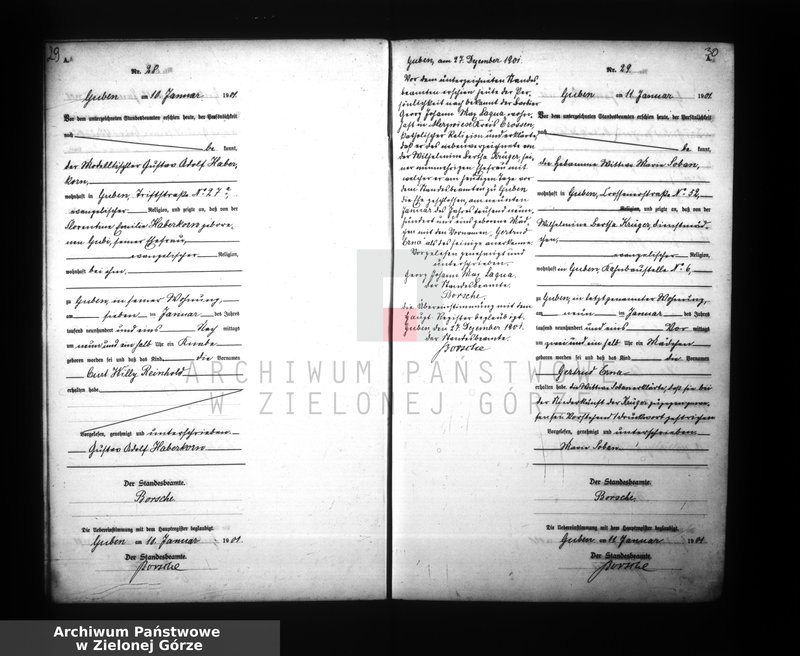 29
Nr. 28
Guben, am 10. Januar 1901.
Vor dem unterzeichneten Standesbeamten erschien heute, der Persönlichkeit
nach be kannt,
der Modelltischler Gustav Adolf Haber-
korn,
wohnhaft in Guben, Triftstraße No 27a,
evangelischer Religion, und zeigte an, daß von der
Florentine Emilie Haberkorn gebore-
nen Gubi, seiner Ehefrau,
evangelischer Religion,
wohnhaft bei ihm,
zu Guben, in seiner Wohnung,
am sieben ten Januar des Jahres
tausend neunhundert und eins Nach mittags
um neun und ein halb Uhr ein Knabe
geboren worden sei und daß das Kind die Vornamen
Curt Willy Reinhold
erhalten habe.
Vorgelesen, genehmigt und unterschrieben
Gustav Adolf Haberkorn
Der Standesbeamte.
Borsche.
Die Uebereinstimmung mit dem Hauptregister beglaubigt.
Guben am 10. Januar 1901.
Der Standesbeamte.
Borsche
Guben, am 27. Dezember 1901.
Vor dem unterzeichneten Standes-
beamten erschien heute der Per-
sönlichkeit nach bekannt der
Georg Johann Max Lagua, wohn-
haft in Merzwiese Kreis Crossen,
katholischer Religion und erklärte,
daß er das nebenverzeichnete von
der Wilhelmine Bertha Krüger, sei-
ner nunmehrigen Ehefrau mit
welcher er am heutigen Tage vor
dem Standesbeamten zu Guben
die Ehe geschlossen, am neunten
Januar des Jahres tausend neun-
hundert und eins geborene Mäd-
chen mit den Vornamen "Gertrud
Erna" als das seinige anerkenne.
Vorgelesen genehmigt und
unterschrieben.
Georg Johann Max Lagua.
der Standesbeamte.
Borsche.
die Übereinstimmung mit dem
Haupt-Register beglaubigt.
Guben, den 27. Dezember 1901.
der Standesbeamte.
Borsche
30
Nr. 29
Guben am 11. Januar 1901.
Vor dem unterzeichneten Standesbeamten erschien heute, der Persönlichkeit
nach be kannt,
die Hebamme Wittwe Marie Soban,
wohnhaft in Guben, Crossenerstraße No 52,
Religion, und zeigte an, daß von der
Wilhelmine Bertha Krüger, Dienstmäd-
chen,
evangelischer Religion,
wohnhaft in Guben, Kahnbaustelle No 6,
zu Guben, in letztgenannter Wohnung,
am neun ten Januar des Jahres
tausend neunhundert und eins Vor mittags
um zwei und ein halb Uhr ein Mädchen
geboren worden sei und daß das Kind die Vornamen
Gertrud Erna
erhalten habe. die Wittwe Soban erklärte, daß sie bei
der Niederkunft der Krüger zugegen gewe-
sen sei. Vorstehend 1 Druckwort gestrichen
Vorgelesen, genehmigt und unterschrieben
Marie Soban
Der Standesbeamte.
Borsche.
Die Uebereinstimmung mit dem Hauptregister beglaubigt.
Guben am 11. Januar 1901.
Der Standesbeamte.
Borsche
ARCHIWUM PAŃSTWOWE
W ZIELONEJ GÓRZE
Archiwum Państwowe
w Zielonej Górze